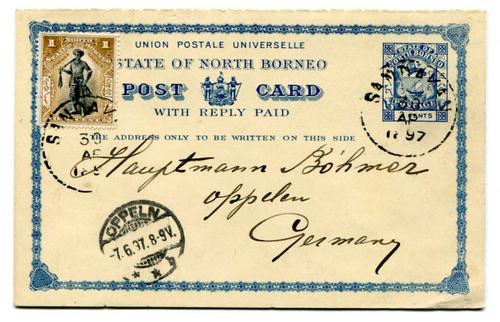 UNION POSTALE UNIVERSELLE
STATE OF NORTH BORNEO
POST CARD
WITH REPLY PAID
THE ADDRESS ONLY TO BE WRITTEN ON THIS SIDE
1
NORTH
1
STATE OF
NORTH BORNEO
CENTS
30
AP
97
30
AP
Hauptmann Böhmer
Oppelen
Germany
OPPELN
7.6.97.8-9V.